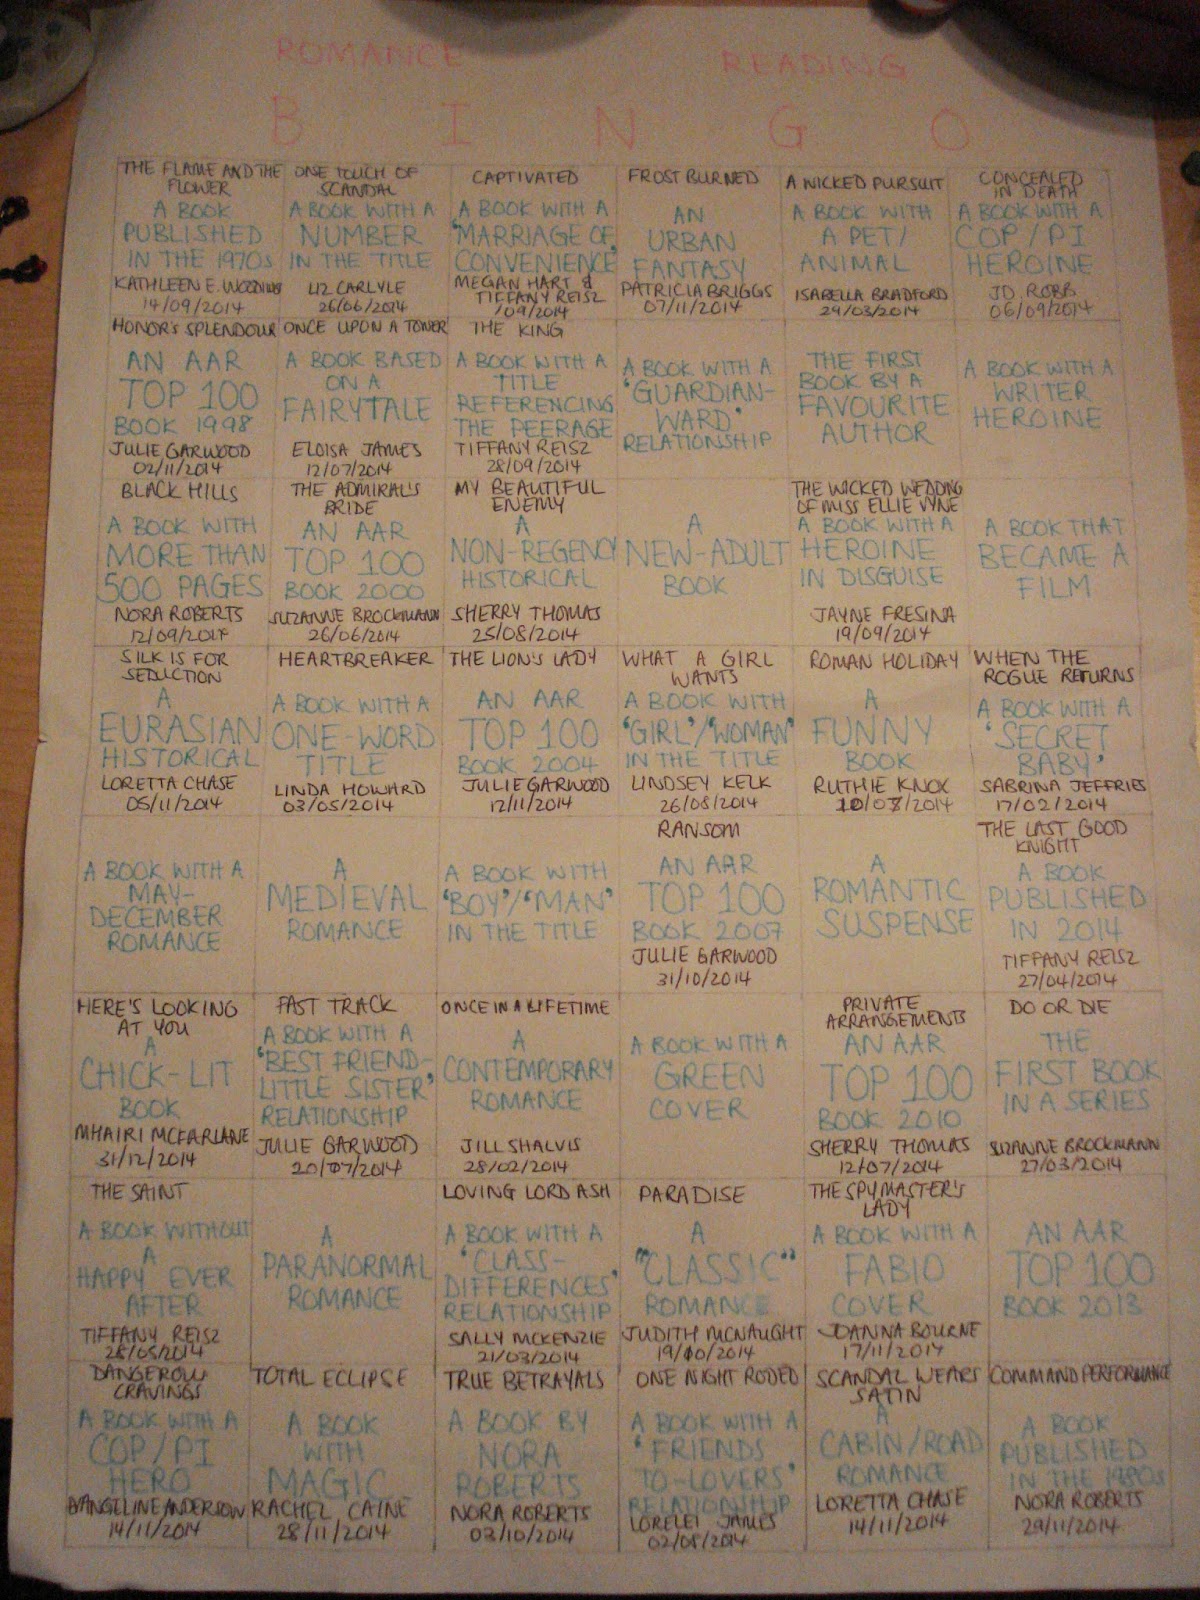 ROMANCE READING
B I N G O
THE FLAME AND THE
FLOWER
A BOOK
PUBLISHED
IN THE 1970s
KATHLEEN E. WOODIWISS
14/09/2014
ONE TOUCH OF
SCANDAL
A BOOK WITH A
NUMBER
IN THE TITLE
LIZ CARLYLE
26/06/2014
CAPTIVATED
A BOOK WITH A
'MARRIAGE OF
CONVENIENCE'
MEGAN HART &
TIFFANY REISZ
/09/2014
FROST BURNED
AN
URBAN
FANTASY
PATRICIA BRIGGS
07/11/2014
A WICKED PURSUIT
A BOOK WITH
A PET/
ANIMAL
ISABELLA BRADFORD
29/03/2014
CONCEALED
IN DEATH
A BOOK WITH A
COP/PI
HEROINE
JD. ROBB
06/09/2014
HONOR'S SPLENDOUR
AN AAR
TOP 100
BOOK 1998
JULIE GARWOOD
02/11/2014
ONCE UPON A TOWER
A BOOK BASED
ON A
FAIRYTALE
ELOISA JAMES
12/07/2014
THE KING
A BOOK WITH A
TITLE
REFERENCING
THE PEERAGE
TIFFANY REISZ
28/09/2014
A BOOK WITH A
'GUARDIAN-
WARD'
RELATIONSHIP
THE FIRST
BOOK BY A
FAVOURITE
AUTHOR
A BOOK WITH A
WRITER
HEROINE
BLACK HILLS
A BOOK WITH
MORE THAN
500 PAGES
NORA ROBERTS
12/09/2014
THE ADMIRAL'S
BRIDE
AN AAR
TOP 100
BOOK 2000
SUZANNE BROCKMANN
26/06/2014
MY BEAUTIFUL
ENEMY
A
NON-REGENCY
HISTORICAL
SHERRY THOMAS
25/08/2014
A
NEW-ADULT
BOOK
THE WICKED WEDDING
OF MISS ELLIE VYNE
A BOOK WITH A
HEROINE
IN DISGUISE
JAYNE FRESINA
19/09/2014
A BOOK THAT
BECAME A
FILM
SILK IS FOR
SEDUCTION
A
EURASIAN
HISTORICAL
LORETTA CHASE
05/11/2014
HEARTBREAKER
A BOOK WITH A
ONE-WORD
TITLE
LINDA HOWARD
03/05/2014
THE LION'S LADY
AN AAR
TOP 100
BOOK 2004
JULIE GARWOOD
12/11/2014
WHAT A GIRL
WANTS
A BOOK WITH
'GIRL'/'WOMAN'
IN THE TITLE
LINDSEY KELK
26/08/2014
ROMAN HOLIDAY
A
FUNNY
BOOK
RUTHIE KNOX
10/07/2014
WHEN THE
ROGUE RETURNS
A BOOK WITH A
'SECRET
BABY'
SABRINA JEFFRIES
17/02/2014
A BOOK WITH A
MAY-
DECEMBER
ROMANCE
A
MEDIEVAL
ROMANCE
A BOOK WITH
'BOY'/'MAN'
IN THE TITLE
RANSOM
AN AAR
TOP 100
BOOK 2007
JULIE GARWOOD
31/10/2014
A
ROMANTIC
SUSPENSE
THE LAST GOOD
KNIGHT
A BOOK
PUBLISHED
IN 2014
TIFFANY REISZ
27/04/2014
HERE'S LOOKING
AT YOU
A
CHICK-LIT
BOOK
MHAIRI MCFARLANE
31/12/2014
FAST TRACK
A BOOK WITH A
'BEST FRIEND-
LITTLE SISTER'
RELATIONSHIP
JULIE GARWOOD
20/07/2014
ONCE IN A LIFETIME
A
CONTEMPORARY
ROMANCE
JILL SHALVIS
28/02/2014
A BOOK WITH A
GREEN
COVER
PRIVATE
ARRANGEMENTS
AN AAR
TOP 100
BOOK 2010
SHERRY THOMAS
12/07/2014
DO OR DIE
THE
FIRST BOOK
IN A SERIES
SUZANNE BROCKMANN
27/03/2014
THE SAINT
A BOOK WITHOUT
A
HAPPY EVER
AFTER
TIFFANY REISZ
28/05/2014
A
PARANORMAL
ROMANCE
LOVING LORD ASH
A BOOK WITH A
'CLASS-
DIFFERENCES'
RELATIONSHIP
SALLY MCKENZIE
21/03/2014
PARADISE
A
"CLASSIC"
ROMANCE
JUDITH MCNAUGHT
19/10/2014
THE SPYMASTER'S
LADY
A BOOK WITH A
FABIO
COVER
JOANNA BOURNE
17/11/2014
AN AAR
TOP 100
BOOK 2013
DANGEROUS
CRAVINGS
A BOOK WITH A
COP/PI
HERO
EVANGELINE ANDERSON
14/11/2014
TOTAL ECLIPSE
A BOOK
WITH
MAGIC
RACHEL CAINE
28/11/2014
TRUE BETRAYALS
A BOOK BY
NORA
ROBERTS
NORA ROBERTS
03/10/2014
ONE NIGHT RODEO
A BOOK WITH A
'FRIENDS
TO-LOVERS'
RELATIONSHIP
LORELEI JAMES
02/08/2014
SCANDAL WEARS
SATIN
A
CABIN/ROAD
ROMANCE
LORETTA CHASE
14/11/2014
COMMAND PERFORMANCE
A BOOK
PUBLISHED
IN THE 1980s
NORA ROBERTS
29/11/2014